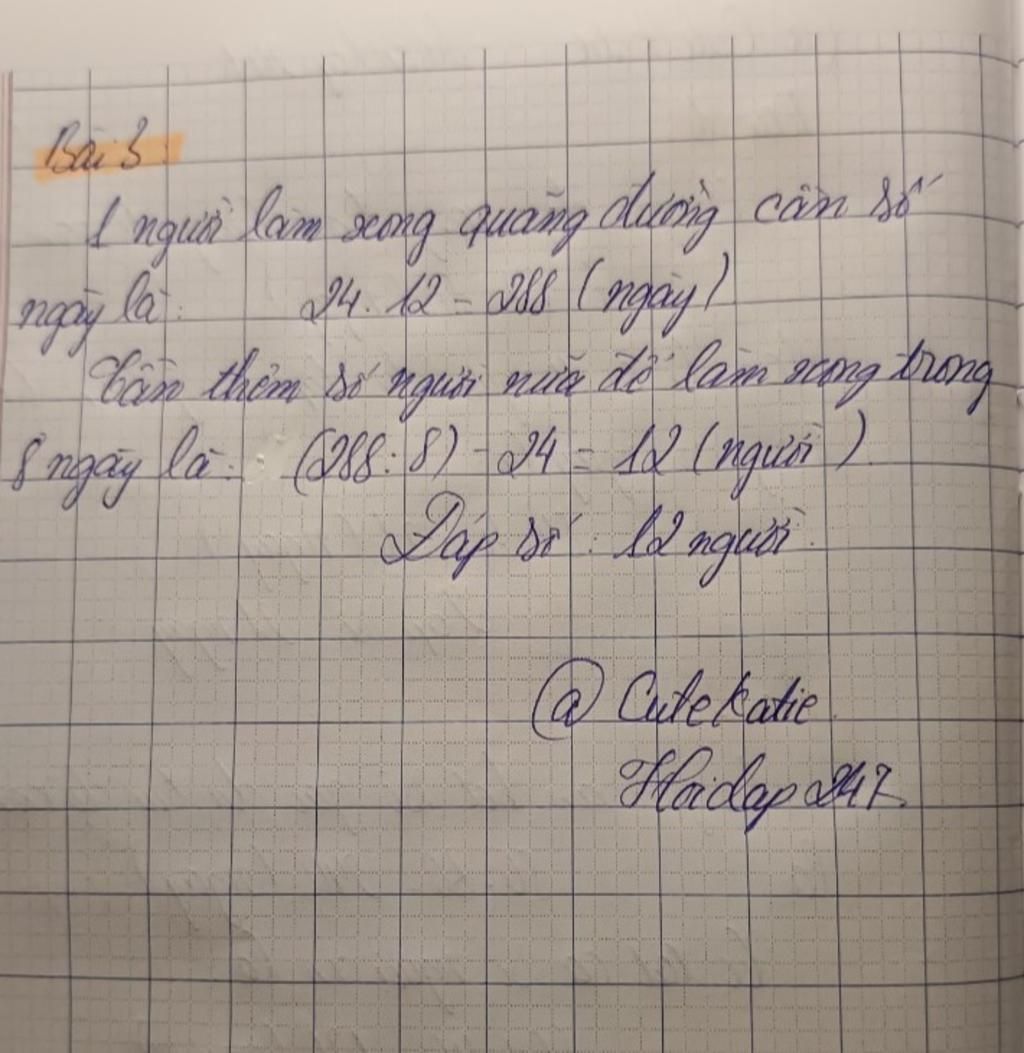 Bài 3:
1 người làm xong quãng đường cần số
ngày là: 24. 12 = 288 (ngày)
Cần thêm số người nữa để làm xong trong
8 ngày là: (288: 8) - 24 = 12 (người).
Đáp số: 12 người.
@ Cutekatie
Hoidap247.